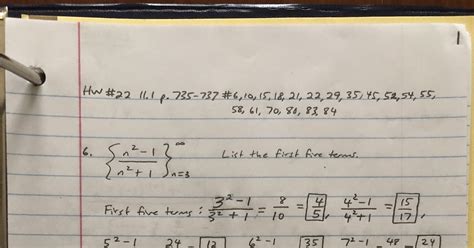 1
HW #22 11.1 p. 735-737 #6,10,15,18,21,22,29,35,45,52,54,55,
58,61,70,80,83,84
6. { n²-1 / n²+1 }^∞_{n=3} List the first five terms.
First five terms: 3²-1 / 3²+1 = 8/10 = 4/5, 4²-1 / 4²+1 = 15/17,
5²-1 24 12 6²-1 35 7²-1 48 24